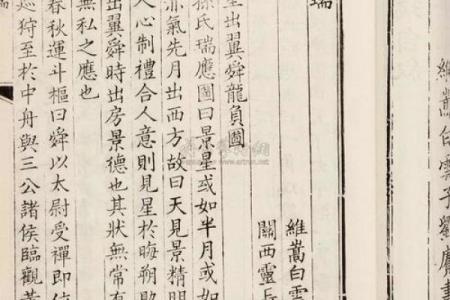 維嵩白雲子劉廣
瑞
維嵩白雲
關西靈
星出翼舜龍負圖
孫氏瑞應圖曰景星或如半月或如
赤氣先月出西方故曰天見景精明
人心制禮合人意則見星於晦朔助
出翼舜時出房景德也其狀無常有
無私之應也
春秋運斗樞曰舜以太尉受禪即位
巡狩至於中舟與三公諸侯臨觀黃
瑞